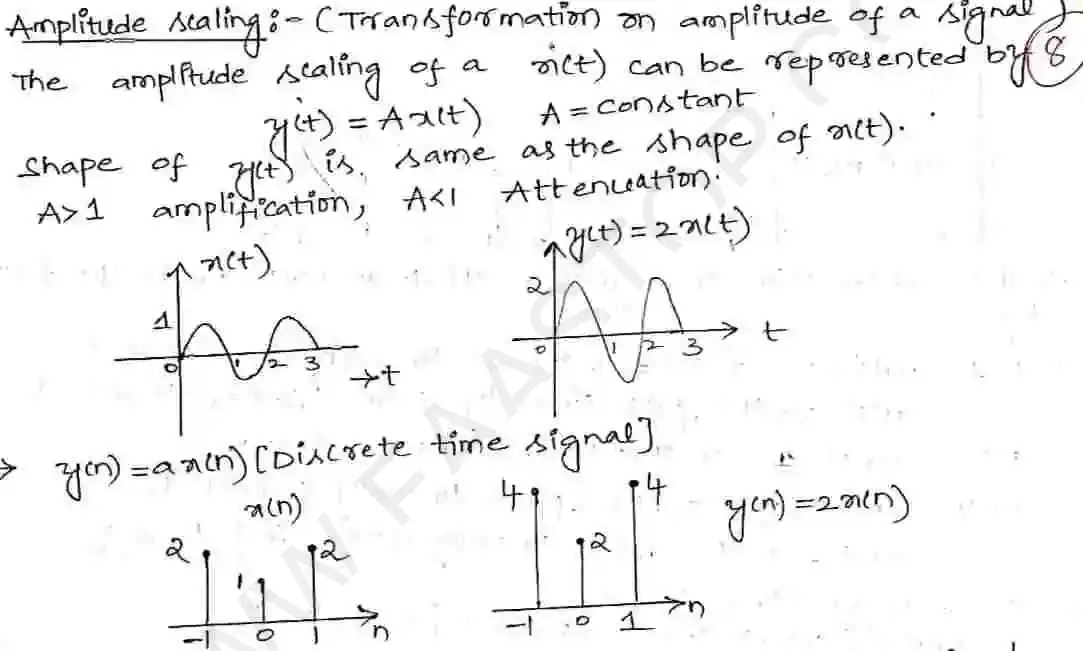 Amplitude scaling :- (Transformation on amplitude of a signal)
The amplitude scaling of a x(t) can be represented by 8
y(t) = Ax(t) A = constant
shape of y(t) is same as the shape of x(t).
A>1 amplification, A<1 Attenuation.
x(t)
1
0 1 2 3
→t
y(t) = 2x(t)
2
0 1 2 3 t
→ y(n) = ax(n) [Discrete time signal]
x(n)
2 1 2
-1 0 1 n
4 2 4
-1 0 1 n
y(n) = 2x(n)